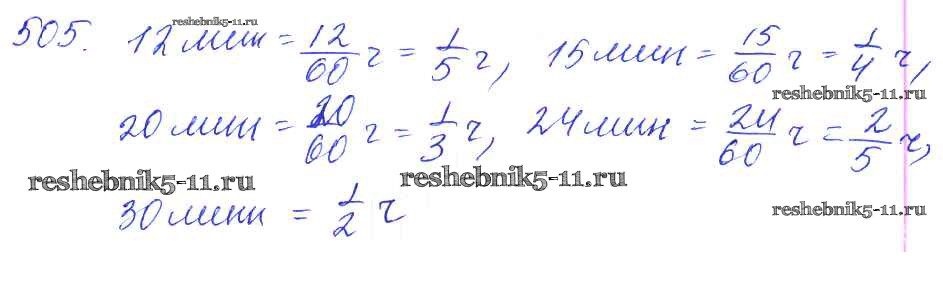 reshebnik5-11.ru
505. 12 мин = 12/60 ч = 1/5 ч, 15 мин = 15/60 ч = 1/4 ч,
reshebnik5-11.ru
20 мин = 20/60 ч = 1/3 ч, 24 мин = 24/60 ч = 2/5 ч,
reshebnik5-11.ru reshebnik5-11.ru
30 мин = 1/2 ч
reshebnik5-11.ru